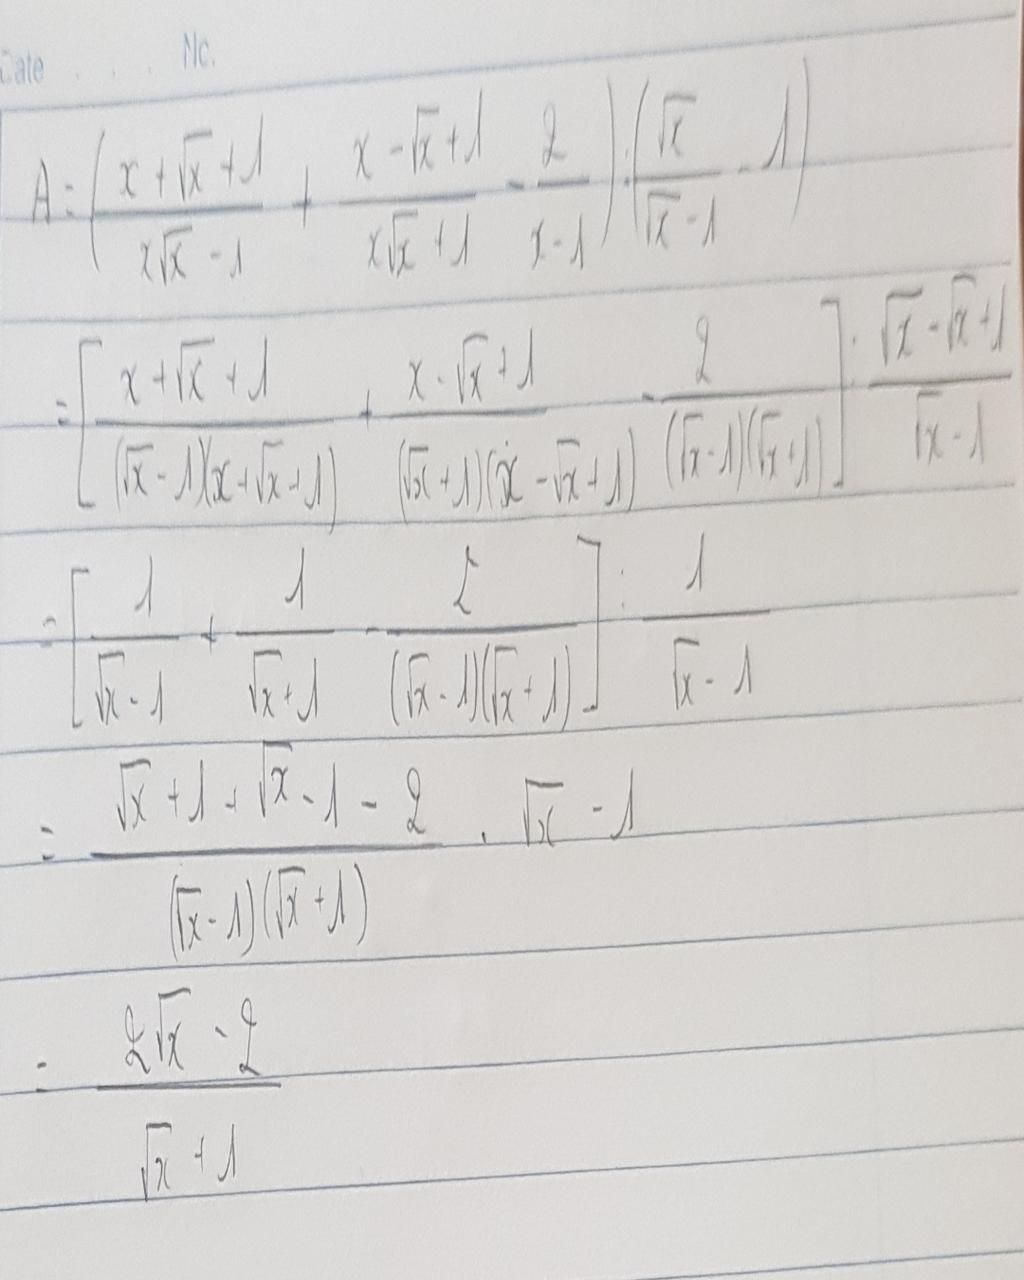 Date . . . No.
A = ( (x + √x + 1)/(x√x - 1) + (x - √x + 1)/(x√x + 1) - 2/(x - 1) ) : ( √x/(√x - 1) - 1 )
= [ (x + √x + 1)/((√x - 1)(x + √x + 1)) + (x - √x + 1)/((√x + 1)(x - √x + 1)) - 2/((√x - 1)(√x + 1)) ] : (√x - √x + 1)/(√x - 1)
= [ 1/(√x - 1) + 1/(√x + 1) - 2/((√x - 1)(√x + 1)) ] : 1/(√x - 1)
= (√x + 1 + √x - 1 - 2)/((√x - 1)(√x + 1)) . √x - 1
= (2√x - 2)/(√x + 1)